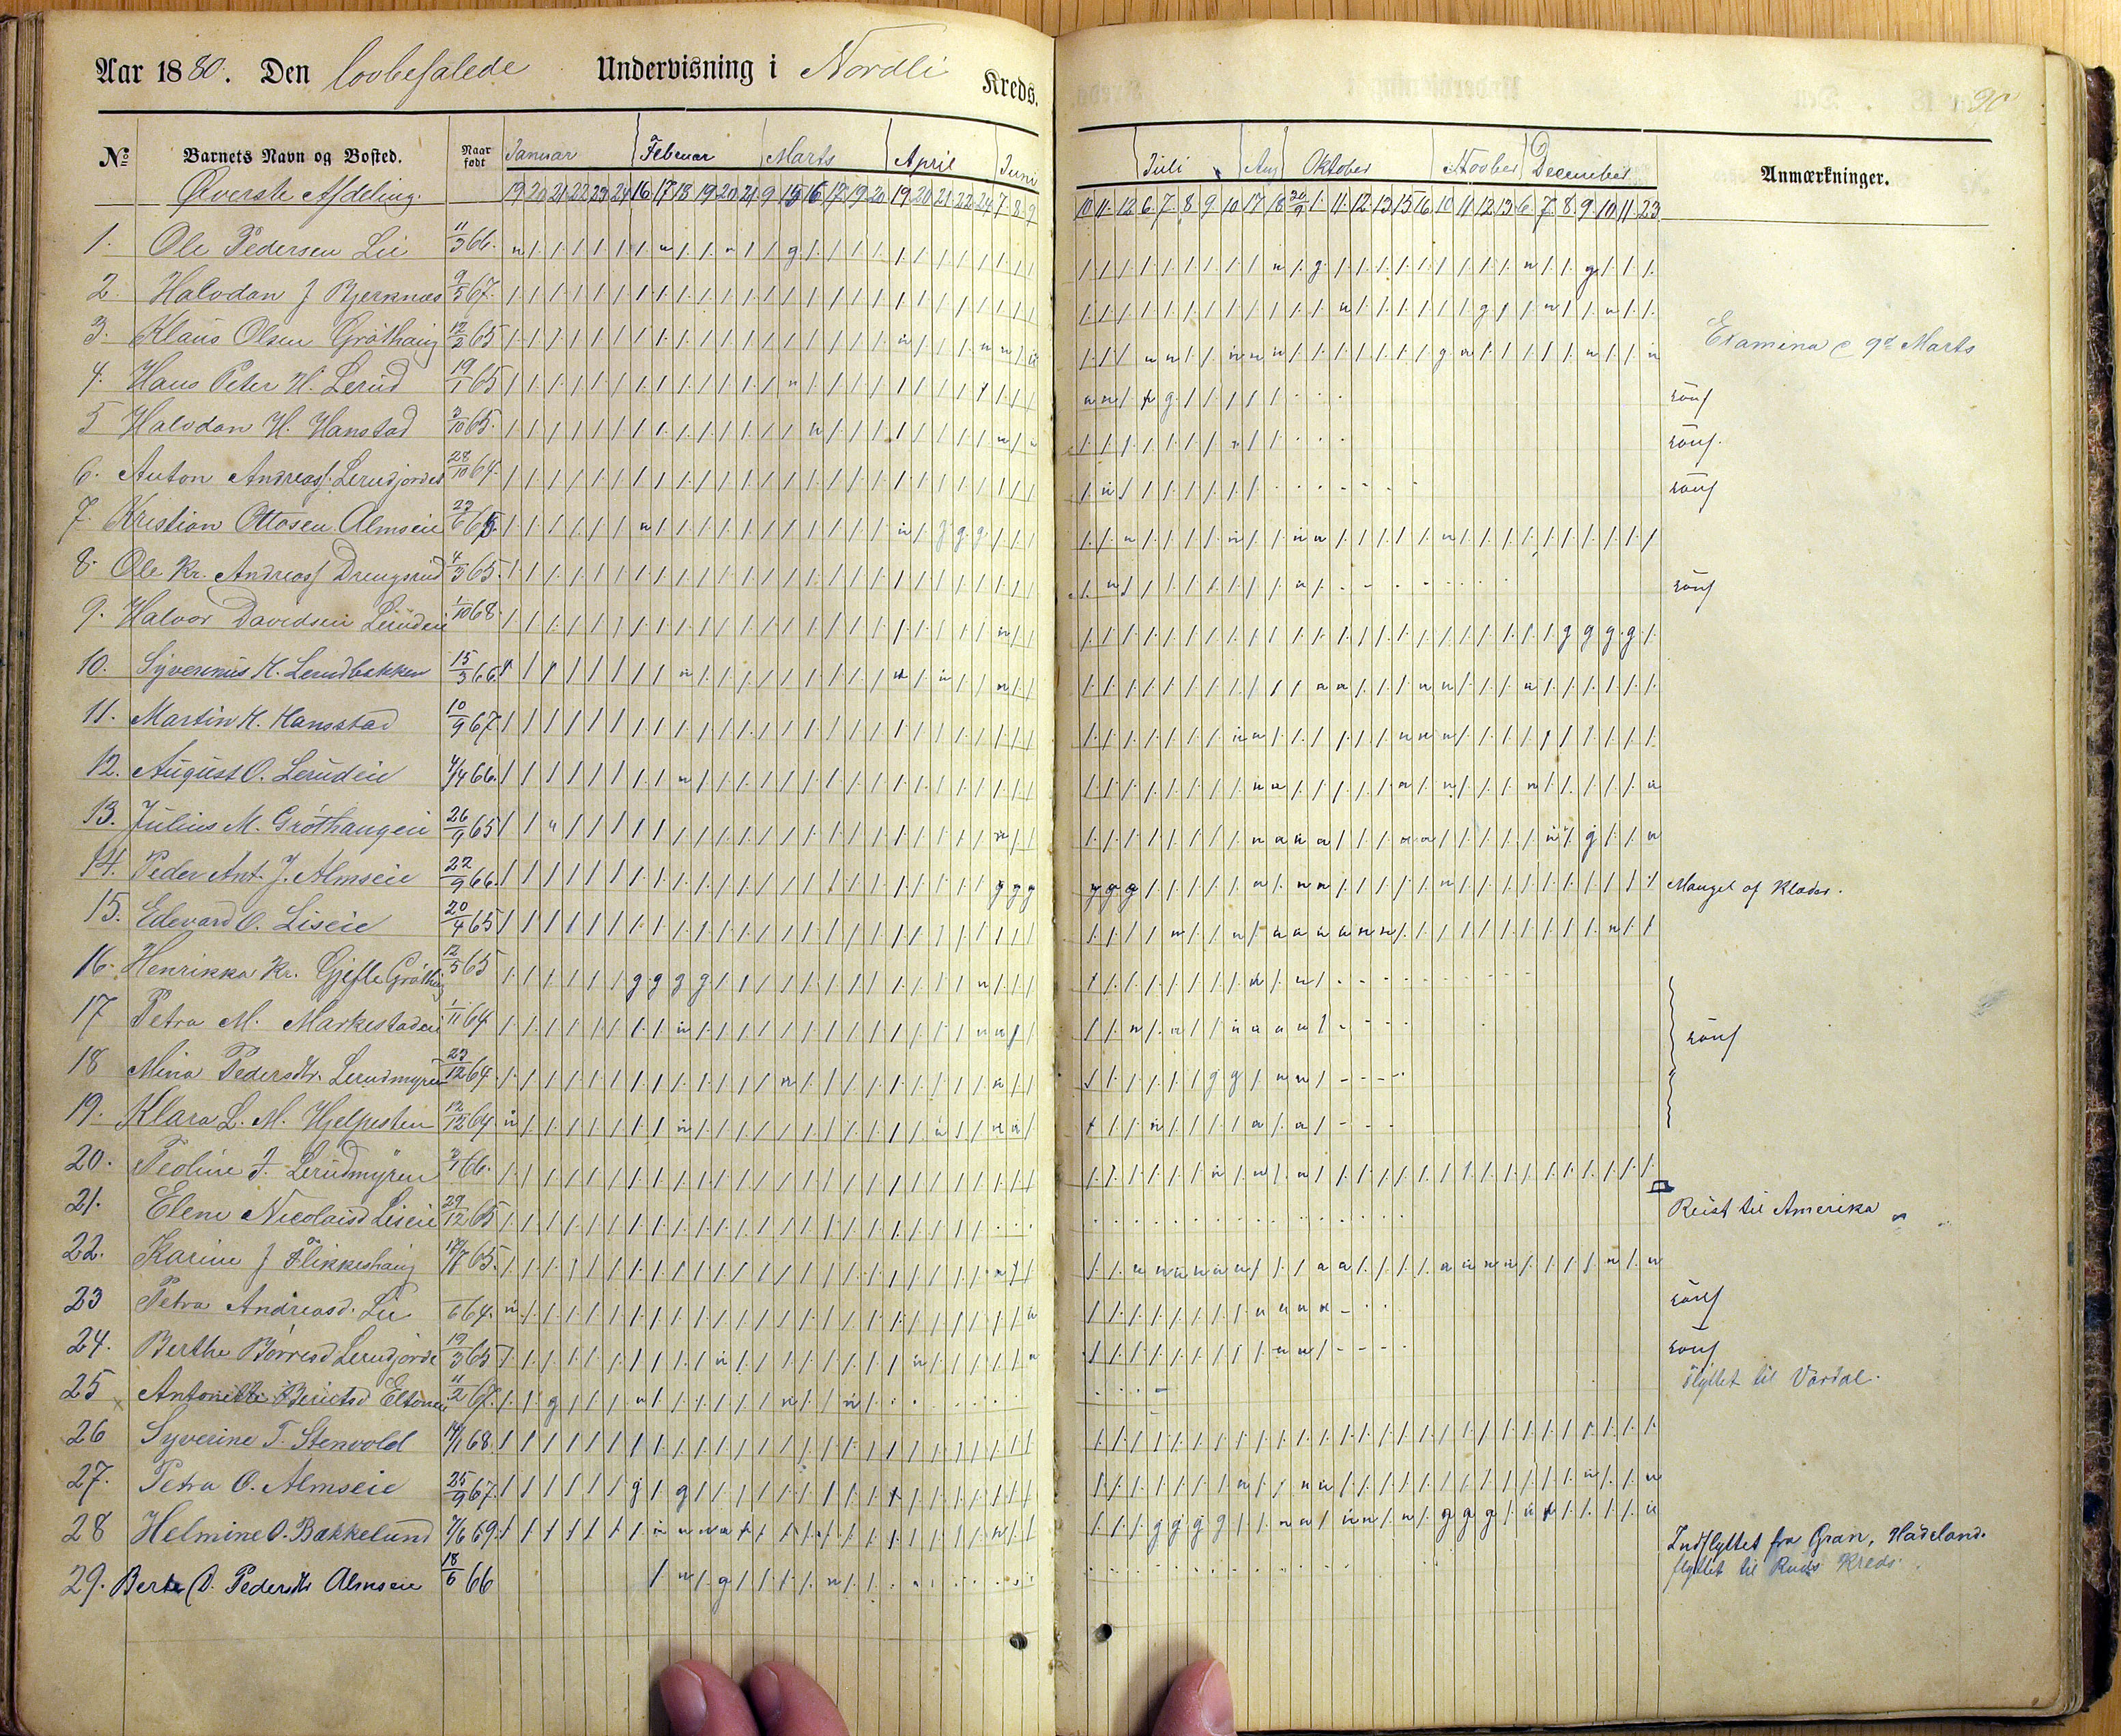 Aar 1880. Den lovbefalede Undervisning i Nordli Kreds.
90
No Barnets Navn og Bosted. Naar født Januar Februar Marts April Juni Juli Aug Oktober Novber December Anmærkninger.
Øverste Afdeling. 19 20 21 22 23 24 16 17 18 19 20 21 9 15 16 17 19 20 19 20 21 22 24 7 8 9 10 11 12 6 7 8 9 10 17 18 30/9 1 11 12 13 15 16 10 11 12 13 6 7 8 9 10 11 23
1. Ole Pedersen Lie 11/3 66.
2. Halvdan J Bjerknæs 9/5 67.
Examina e 9d Marts
3. Klaus Olsen Gröthaug 12/2 65
4. Hans Peter H. Lerud 19/1 65 konf
5 Halvdan H. Hanstad 3/10 65. konf.
6. Anton Andreass. Lerudjordet 28/10 64. konf
7. Kristian Ottosen Almseie 23/6 65.
8. Ole Kr. Andreass Drengsrud 4/3 65. konf
9. Halvor Davidsen Lerudeie 1/10 68.
10. Syverinus K. Lerudbakken 15/3 66.
11. Martin H. Hansstad 10/9 67
12. August O. Lerudeie 4/4 66.
13. Julius M. Gröthaugen 26/9 65
14. Peder Ant. J. Almseie 22/9 66. Mangel af Klæder.
15. Edevard O. Liseie 20/4 65
16. Henrikka Kr. Gjefle Gröthaug 12/5 65
17 Petra M. Markestadeie 1/11 64 konf
18 Mina Pedersdtr. Lerudmyren 23/12 64
19. Klara L. M. Hjelpesten 12/12 64
20. Teoline J. Lerudmyren 3/1 66.
21. Elene Nicolaisd Liseie 29/12 65 Reist til Amerika
22. Karine J Flikkeshaug 17/7 65.
23 Petra Andreasd. Lie /6 64. konf
24. Berthe Börresd Lerudjorde 19/3 65 konf
25 Antonette Berntsd Eltoneie 11/2 67. flyttet til Vardal.
26 Syverine T. Stenvold 14/1 68.
27. Petra O. Almseie 25/9 67.
28 Helmine O. Bakkelund 7/6 69. Indflyttet fra Gran, Hadeland.
29. Berte O. Pedersdtr Almseie 18/6 66 flyttet til Ruds Kreds.